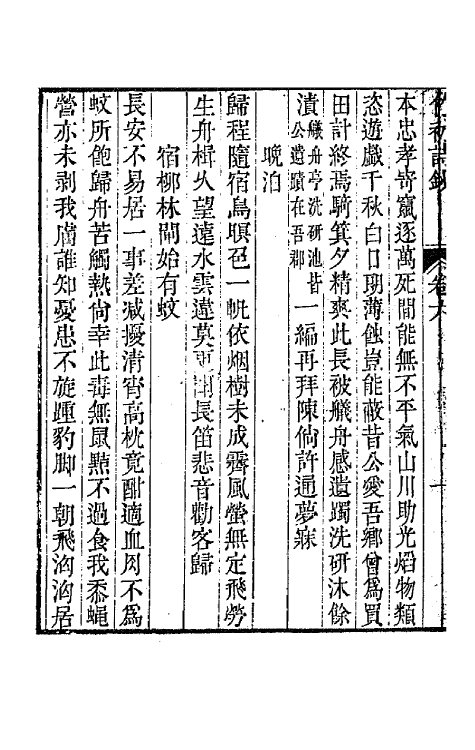 本忠孝奇竄逐萬死間能無不平氣山川助光熖物類
恣遊戲千秋白日明薄蝕豈能蔽昔公愛吾鄉曾爲買
田計終焉騎箕夕精爽此長被艤舟感遺躅洗硏沐餘
漬艤舟亭洗硏池皆公遺蹟在吾郡一編再拜陳倘許通夢寐
晩泊
歸程隨宿鳥暝色一帆依烟樹未成靄風螢無定飛勞
生舟楫久望遠水雲違莫更謝長笛悲音勸客歸
宿柳林閘始有蚊
長安不易居一事差减擾清宵高枕竟酣適血肉不爲
蚊所飽歸舟苦觸熱倘幸此毒無鼠黠不過食我黍蠅
營亦未剥我膚誰知憂患不旋踵豹脚一朝飛洶洶居
卷六